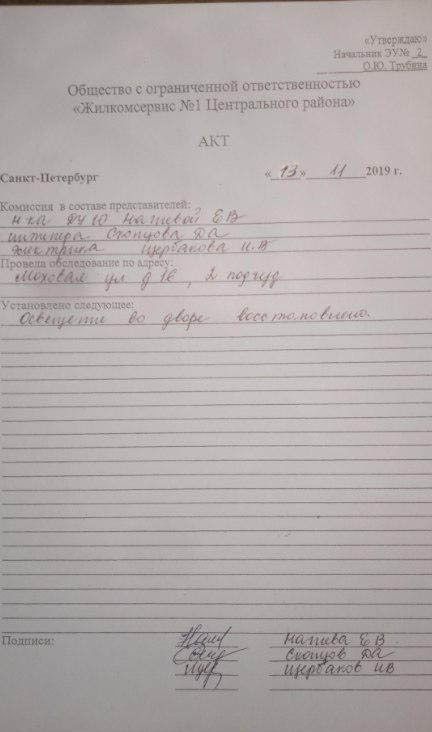 «Утверждаю»
Начальник ЭУ№ 2
О.Ю. Трубина
Общество с ограниченной ответственностью
«Жилкомсервис №1 Центрального района»
АКТ
Санкт-Петербург «13» 11 2019 г.
Комиссия в составе представителей:
н-ка ДУ 10 Натиевой Е В
инженера Скопцова Д А
электрика Щербакова И.В
Провели обследование по адресу:
Моховая ул д 16, 2 подчуд
Установлено следующее:
Освещение во дворе восстановлено.
Подписи:
Натиева Е В
Скопцов Д А
Щербаков И В